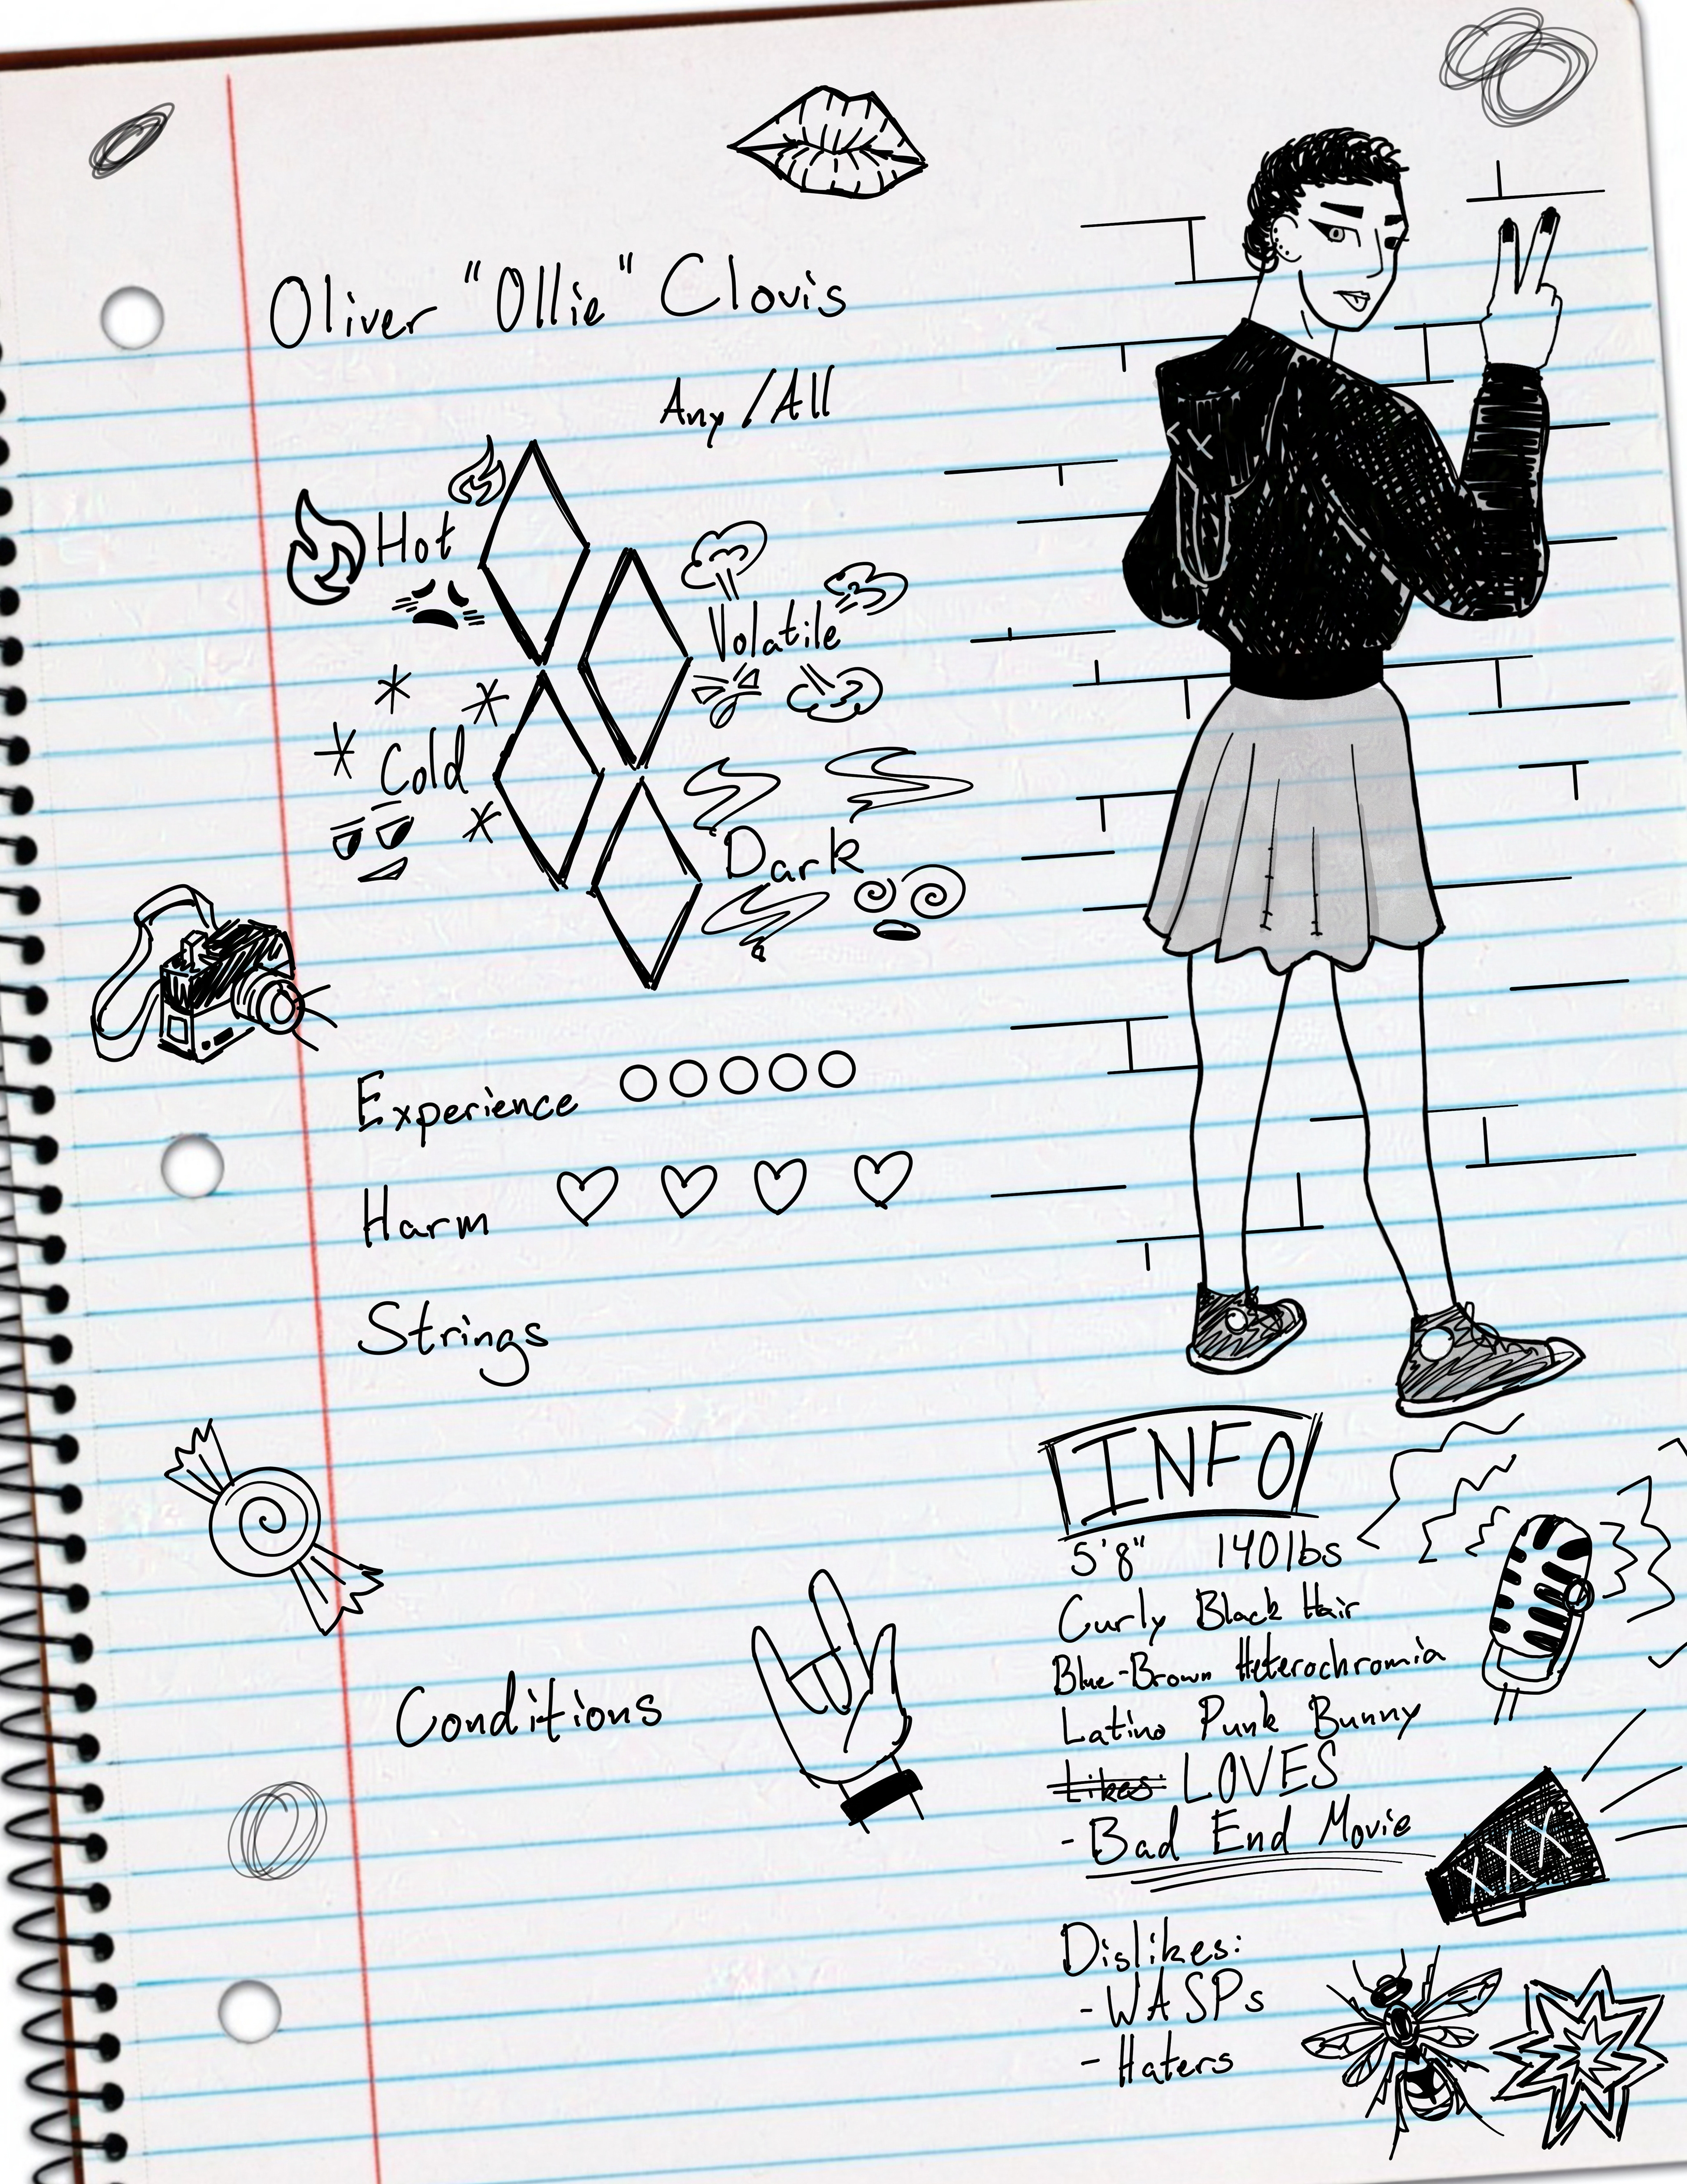 Oliver "Ollie" Clovis
Any/All
Hot
Volatile
Cold
Dark
Experience
Harm
Strings
Conditions
INFO
5'8" 140lbs
Curly Black Hair
Blue-Brown Heterochromia
Latino Punk Bunny
Likes: LOVES
- Bad End Movie
Dislikes:
- WASPs
- Haters
XXX